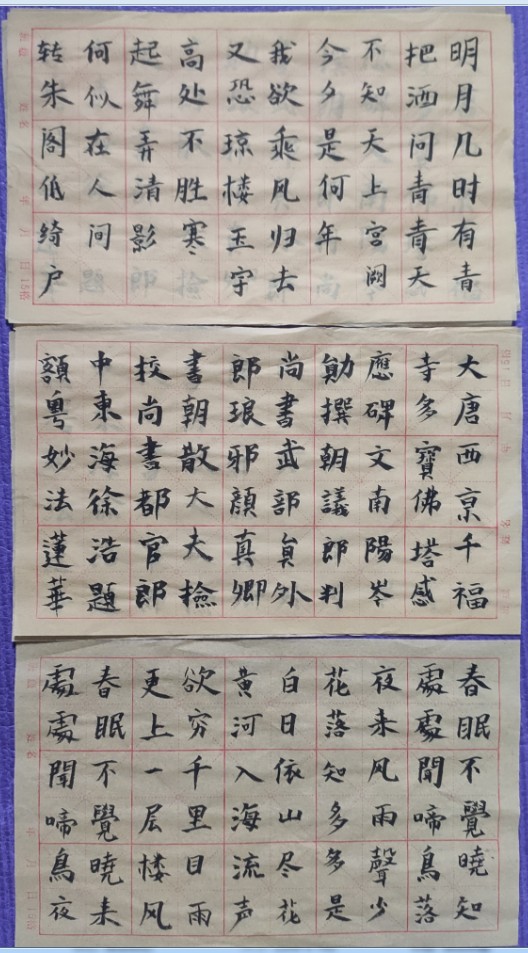 明月几时有青
把酒问青青天
不知天上宫阙
今夕是何年
我欲乘风归去
又恐琼楼玉宇
高处不胜寒
起舞弄清影
何似在人间
转朱阁低绮户
大唐西京千福
寺多寶佛塔感
應碑文南陽岑
勛撰朝議郎判
尚書武部員外
郎琅邪顏真卿
書朝散大夫檢
校尚書都官郎
中東海徐浩題
額粤妙法蓮華
春眠不覺曉知
處處聞啼鳥落
夜来风雨聲少
花落知多多是
白日依山尽花
黄河入海流声
欲穷千里目雨
更上一层楼风
春眠不覺曉来
處處聞啼鳥夜